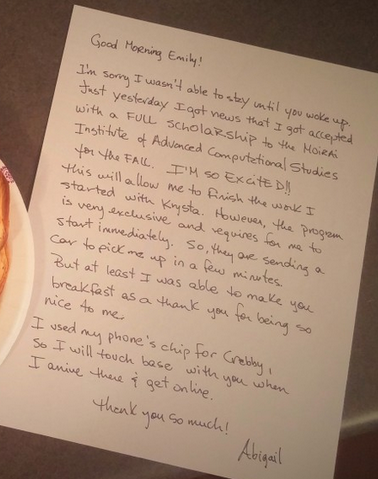 Good Morning Emily!
I'm sorry I wasn't able to stay until you woke up.
Just yesterday I got news that I got accepted
with a FULL SCHOLARSHIP to the MOIRAI
Institute of Advanced Computational Studies
for the FALL. I'M SO EXCITED!!
this will allow me to finish the work I
started with Krysta. However, the program
is very exclusive and requires for me to
start immediately. So, they are sending a
car to pick me up in a few minutes.
But at least I was able to make you
breakfast as a thank you for being so
nice to me.
I used my phone's chip for Crebby,
So I will touch base with you when
I arrive there & get online.
thank you so much!
Abigail